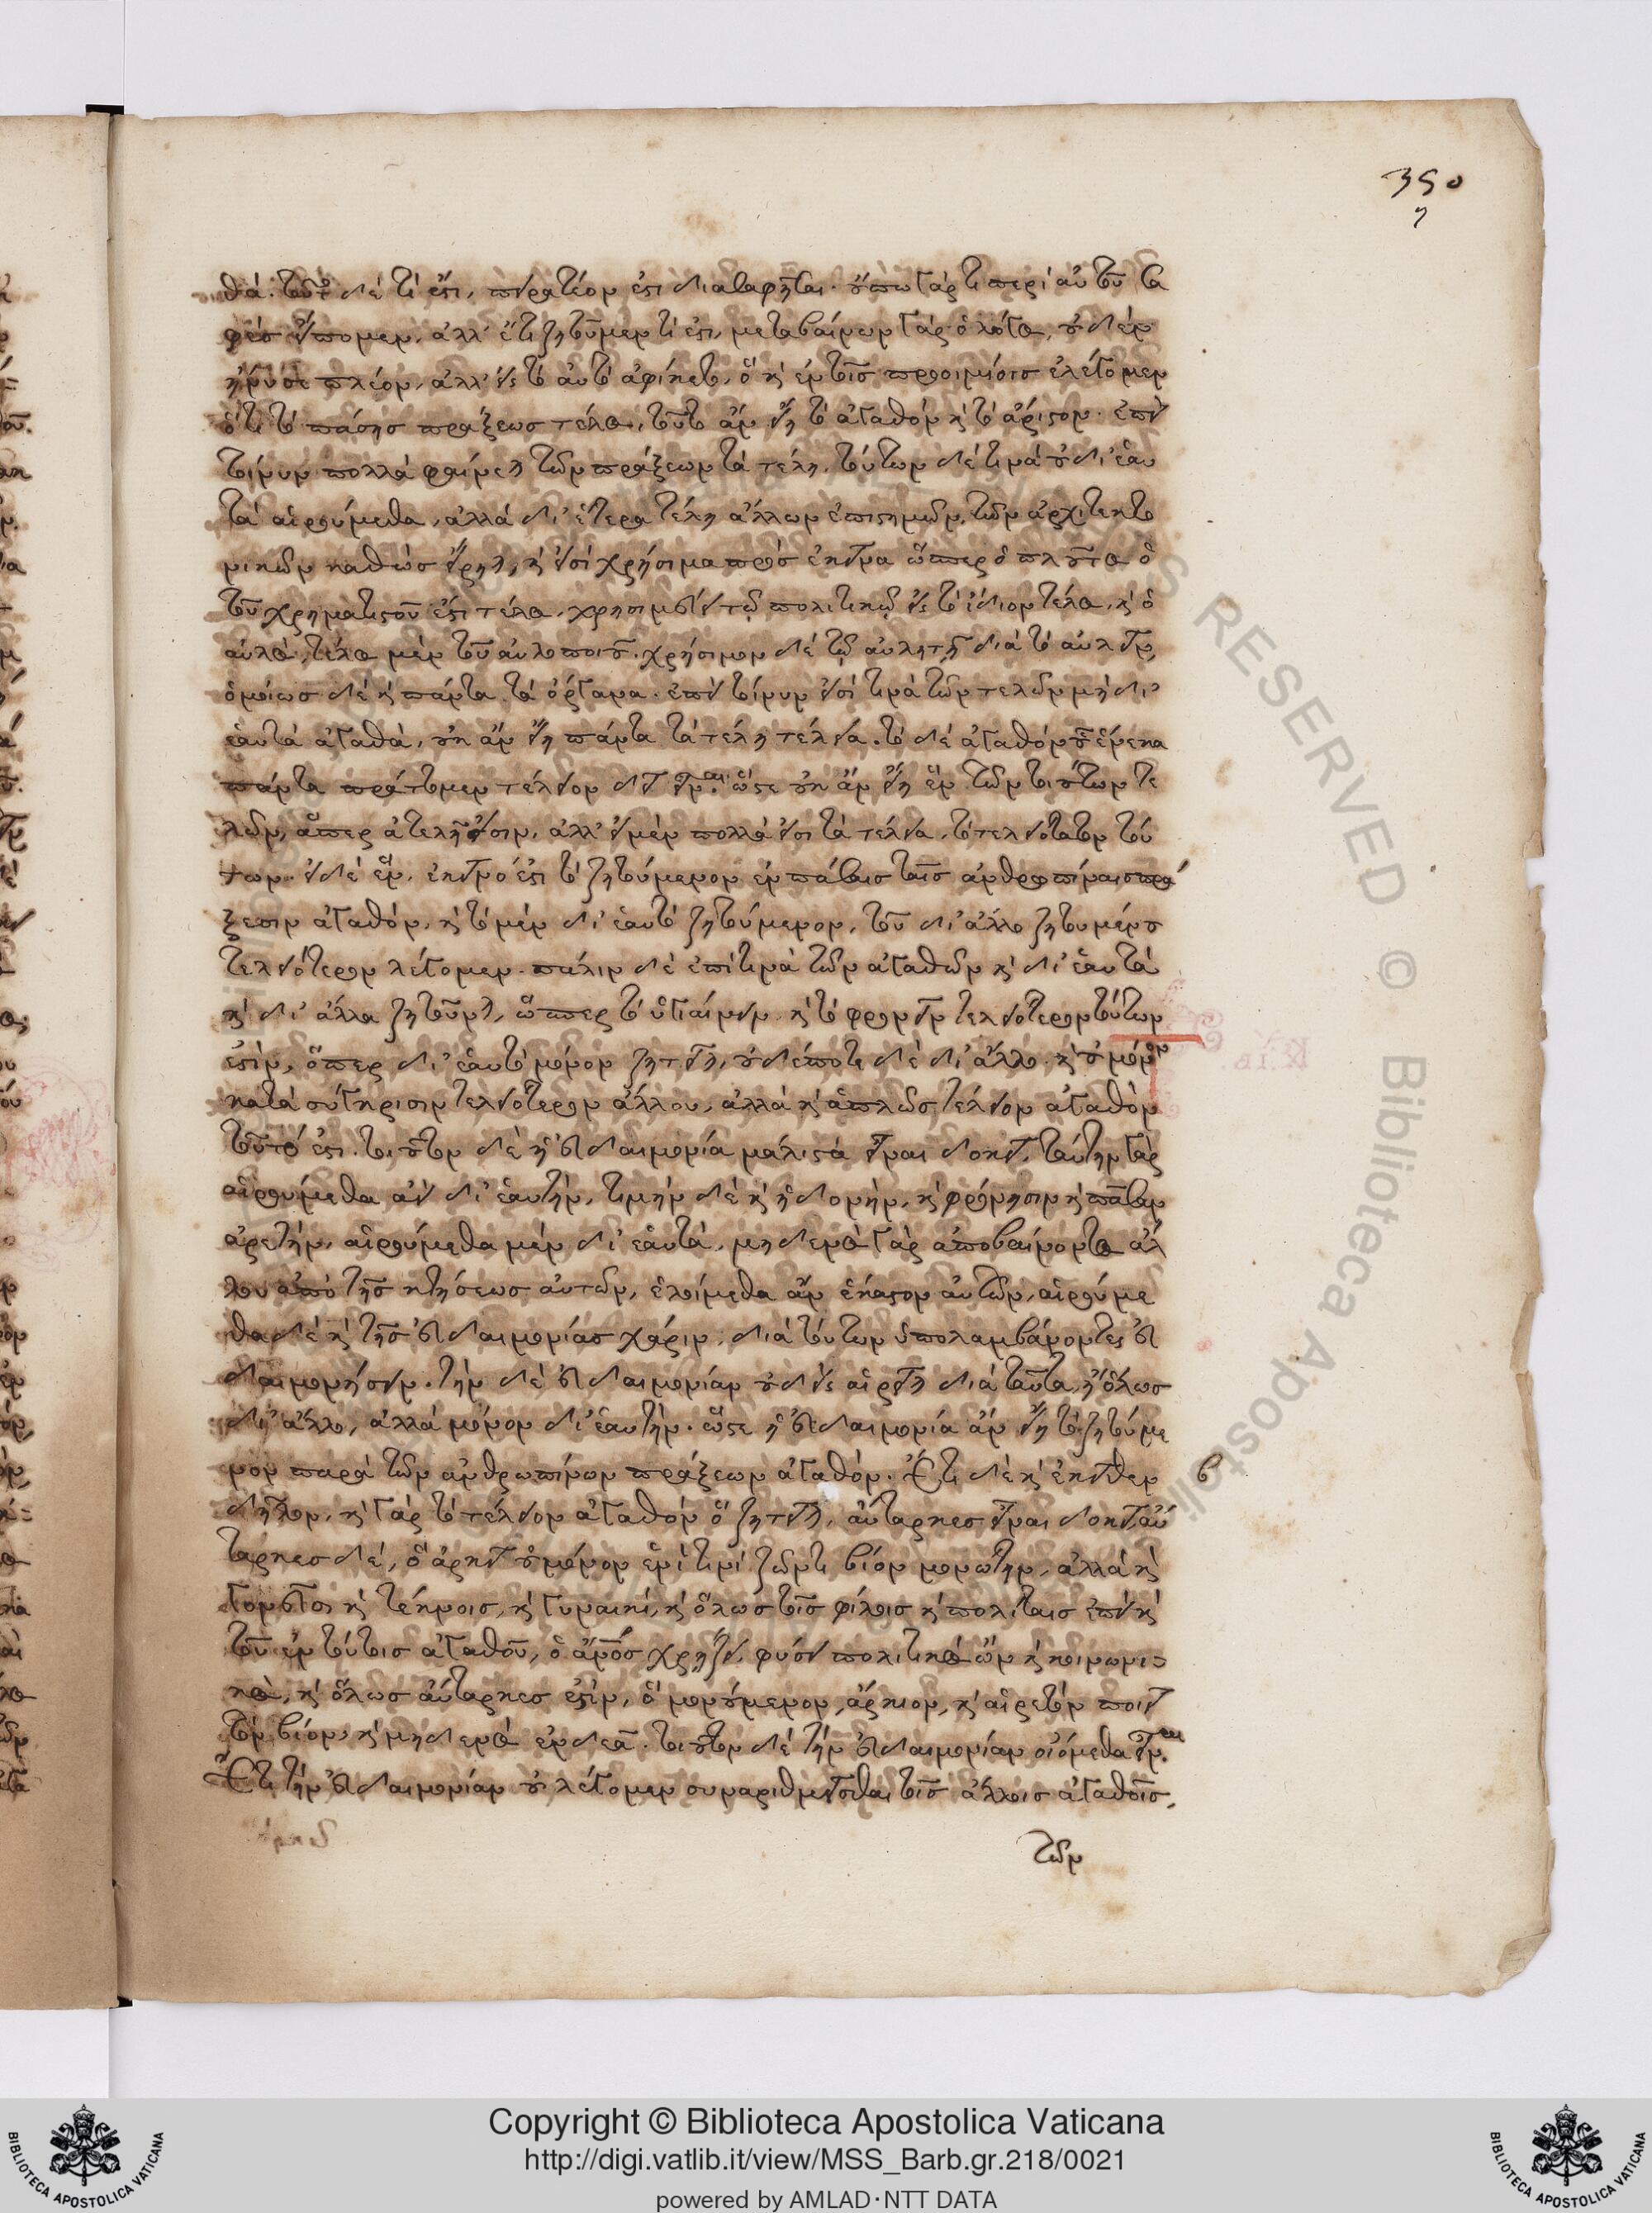 350
θά. τοῦτο δέ τί ἐστι, πειρατέον ἔτι διασαφῆσαι. οὔπω γάρ τι περὶ αὐτοῦ σα
φὲς εἴπομεν, ἀλλ' ἔτι ζητοῦμεν τί ἐστι, μεταβαίνων γὰρ ὁ λόγος, οὐδὲν
ἤνυσε πλέον, ἀλλ' εἰς τὸ αὐτὸ ἀφίκετο, ὃ καὶ ἐν τοῖς προοιμίοις ἐλέγομεν
ὅτι τὸ πάσης πράξεως τέλος, τοῦτο ἂν εἴη τὸ ἀγαθὸν καὶ τὸ ἄριστον. ἐπεὶ
τοίνυν πολλὰ φαίνεται τῶν πράξεων τὰ τέλη, τούτων δέ τινα οὐ δι' ἑαυ
τὰ αἱρούμεθα, ἀλλὰ δι' ἕτερα τέλη ἄλλων ἐπιστημῶν, τῶν ἀρχιτεκτο
νικῶν καθὼς εἴρηται, καὶ εἰσὶ χρήσιμα πρὸς ἐκεῖνα ὥσπερ ὁ πλοῦτος ὃ
τοῦ χρηματιστοῦ ἐστι τέλος, χρησιμεύει τῷ πολιτικῷ εἰς τὸ ἴδιον τέλος, καὶ ὁ
αὐλὸς, τέλος μὲν τοῦ αὐλοποιοῦ. χρήσιμον δὲ τῷ αὐλητῇ διὰ τὸ αὐλεῖν,
ὁμοίως δὲ καὶ πάντα τὰ ὄργανα. ἐπεὶ τοίνυν εἰσί τινα τῶν τελῶν μὴ δι'
ἑαυτὰ ἀγαθὰ, οὐκ ἂν εἴη πάντα τὰ τέλη τέλεια. τὸ δὲ ἀγαθὸν οὗ ἕνεκα
πάντα πράττομεν τέλειον δεῖ εἶναι. ὥστε οὐκ ἂν εἴη ἓν τῶν τοιούτων τε
λῶν, ἅπερ ἀτελῆ εἰσιν, ἀλλ' εἰ μὲν πολλά εἰσι τὰ τέλεια, τὸ τελειότατον τού
των. εἰ δὲ ἓν, ἐκεῖνό ἐστι τὸ ζητούμενον ἐν πάσαις ταῖς ἀνθρωπίναις πρά
ξεσιν ἀγαθόν. καὶ τὸ μὲν δι' ἑαυτὸ ζητούμενον, τοῦ δι' ἄλλο ζητουμένου
τελειότερον λέγομεν. πάλιν δὲ ἐπεί τινα τῶν ἀγαθῶν καὶ δι' ἑαυτὰ
καὶ δι' ἄλλα ζητοῦνται, ὥσπερ τὸ ὑγιαίνειν καὶ τὸ φρονεῖν τελειότερον τούτων
ἐστὶν, ὅπερ δι' ἑαυτὸ μόνον ζητεῖται, οὐδέποτε δὲ δι' ἄλλο. καὶ οὐ μόνον
κατὰ σύγκρισιν τελειότερον ἄλλου, ἀλλὰ καὶ ἁπλῶς τέλειον ἀγαθὸν
τοῦτό ἐστι. τοιοῦτον δὲ ἡ εὐδαιμονία μάλιστα εἶναι δοκεῖ. ταύτην γὰρ
αἱρούμεθα ἀεὶ δι' ἑαυτὴν, τιμὴν δὲ καὶ ἡδονὴν, καὶ φρόνησιν καὶ πᾶσαν
ἀρετὴν, αἱρούμεθα μὲν δι' ἑαυτὰ, μηδενὸς γὰρ ἀποβαίνοντος ἄλ
λου ἀπὸ τῆς κτήσεως αὐτῶν, ἑλοίμεθα ἂν ἕκαστον αὐτῶν, αἱρούμε
θα δὲ καὶ τῆς εὐδαιμονίας χάριν, διὰ τούτων ὑπολαμβάνοντες εὐ
δαιμονήσειν. τὴν δὲ εὐδαιμονίαν οὐδεὶς αἱρεῖται διὰ ταῦτα, ἢ ὅλως
δι' ἄλλο, ἀλλὰ μόνον δι' ἑαυτὴν. ὥστε ἡ εὐδαιμονία ἂν εἴη τὸ ζητούμε
νον παρὰ τῶν ἀνθρωπίνων πράξεων ἀγαθόν. Ἔτι δὲ καὶ ἐκεῖθεν
δῆλον, καὶ γὰρ τὸ τέλειον ἀγαθὸν ὃ ζητεῖται, αὔταρκες εἶναι δοκεῖ αὔ
ταρκες δὲ, ὃ ἀρκεῖ οὐ μόνον ἑνί τινι ζῶντι βίον μονώτην, ἀλλὰ καὶ
γονεῦσι καὶ τέκνοις, καὶ γυναικὶ, καὶ ὅλως τοῖς φίλοις καὶ πολίταις ἐπεὶ καὶ
τοῦ ἐν τούτοις ἀγαθοῦ, ὁ ἄνθρωπος χρῄζει, φύσει πολιτικὸς ὢν καὶ κοινωνι=
κὸς, καὶ ὅλως αὔταρκές ἐστιν, ὃ μονούμενον, ἄρκιον, καὶ αἱρετὸν ποιεῖ
τὸν βίον, καὶ μηδενὸς ἐνδεᾶ. τοιοῦτον δὲ τὴν εὐδαιμονίαν οἰόμεθα εἶναι.
Ἔτι τὴν εὐδαιμονίαν οὐ λέγομεν συναριθμεῖσθαι τοῖς ἄλλοις ἀγαθοῖς,
τῶν
RESERVED © Biblioteca Apostoli
Copyright © Biblioteca Apostolica Vaticana
http://digi.vatlib.it/view/MSS_Barb.gr.218/0021
powered by AMLAD·NTT DATA
BIBLIOTECA APOSTOLICA VATICANA
BIBLIOTECA APOSTOLICA VATICANA